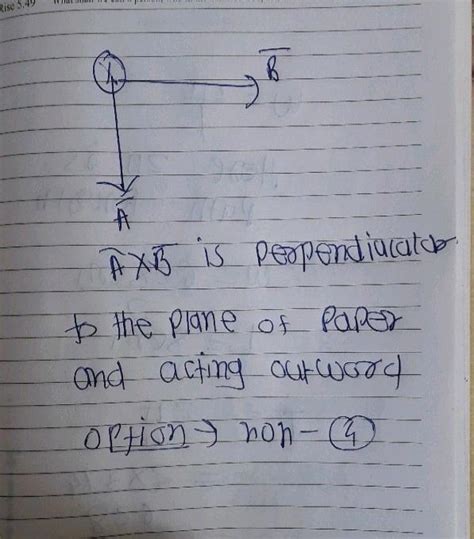 Rise 5.49
B
A
A X B is perpendiacatcb
to the plane of Paper
and acting outword
option → non - 4